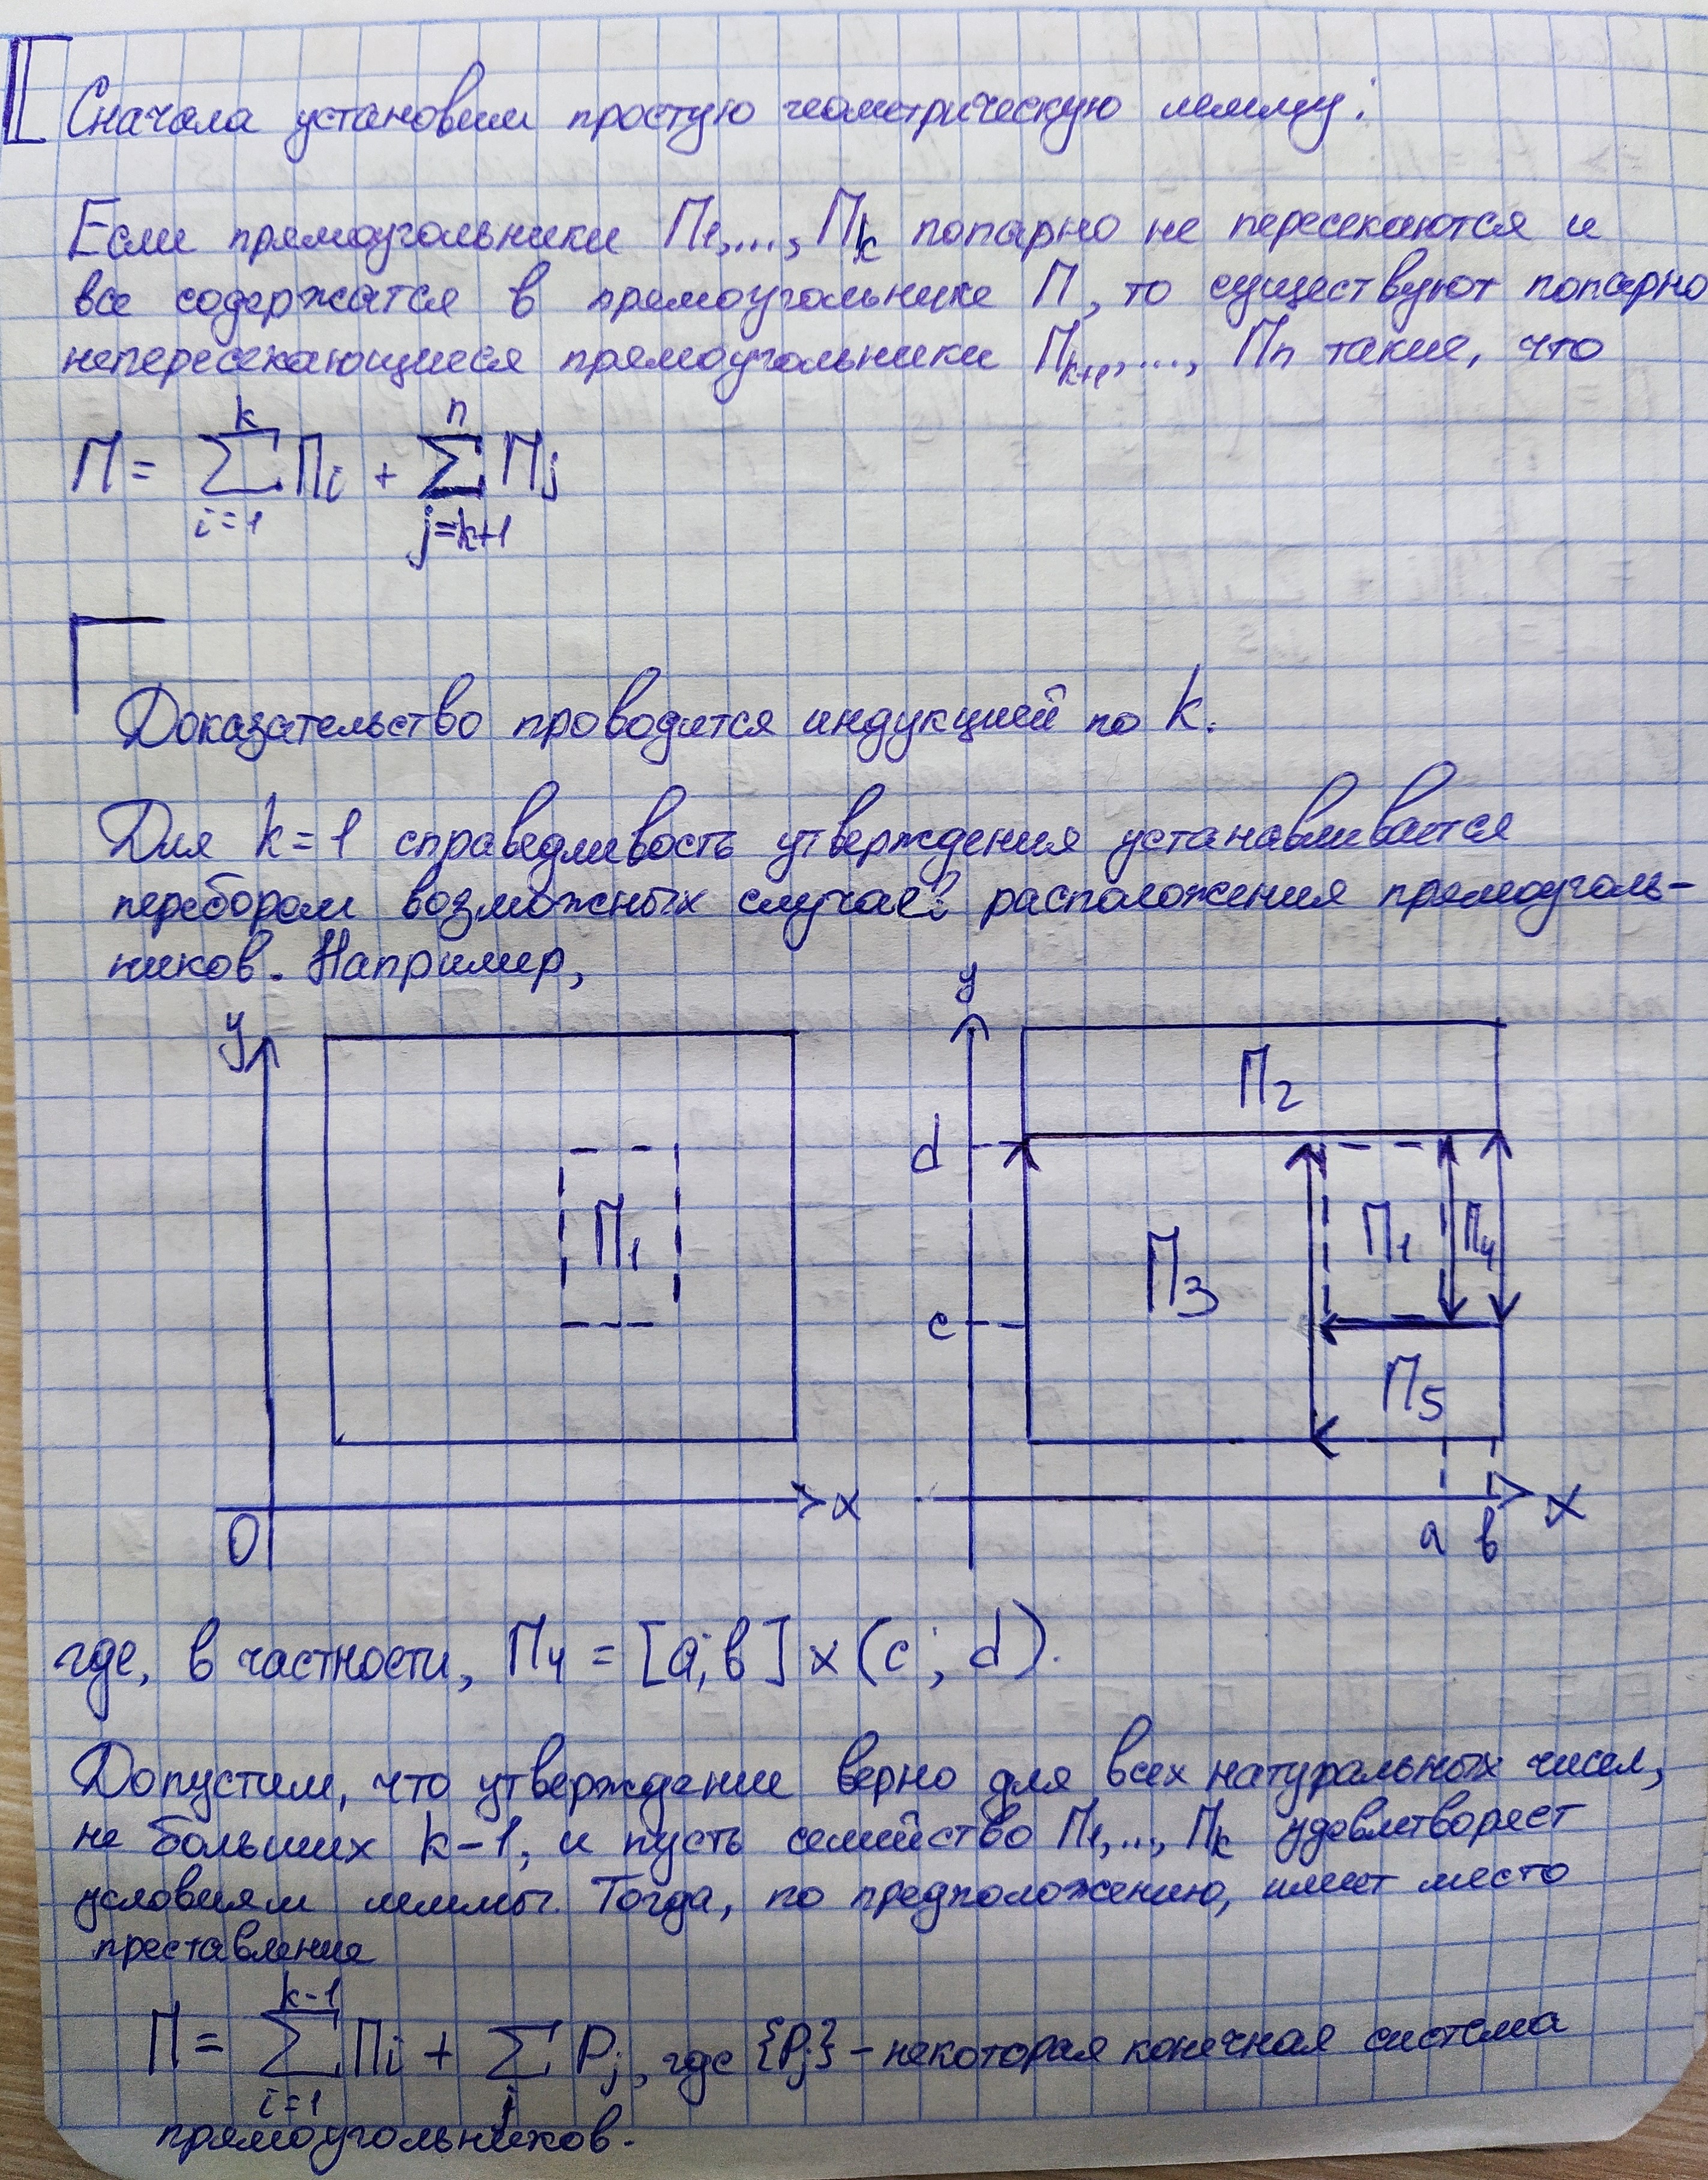 Сначала установим простую геометрическую лемму:
Если прямоугольники П₁,..., Пₖ попарно не пересекаются и
все содержатся в прямоугольнике П, то существуют попарно
непересекающиеся прямоугольники Пₖ₊₁,..., Пₙ такие, что
k n
П = ∑ Пᵢ + ∑ Пⱼ
i=1 j=k+1
Доказательство проводится индукцией по k.
Для k=1 справедливость утверждения устанавливается
перебором возможных случаев расположения прямоуголь-
ников. Например,
y
П₁
0
x
y
d
c
П₂
П₃
П₁
П₄
П₅
a
в
x
где, в частности, П₄ = [a;в] x (c; d).
Допустим, что утверждение верно для всех натуральных чисел,
не больших k-1, и пусть семейство П₁,..., Пₖ удовлетворяет
условиям леммы. Тогда, по предположению, имеет место
преставление
k-1
П = ∑ Пᵢ + ∑ Pⱼ, где {Pⱼ} - некоторая конечная система
i=1 j
прямоугольников.